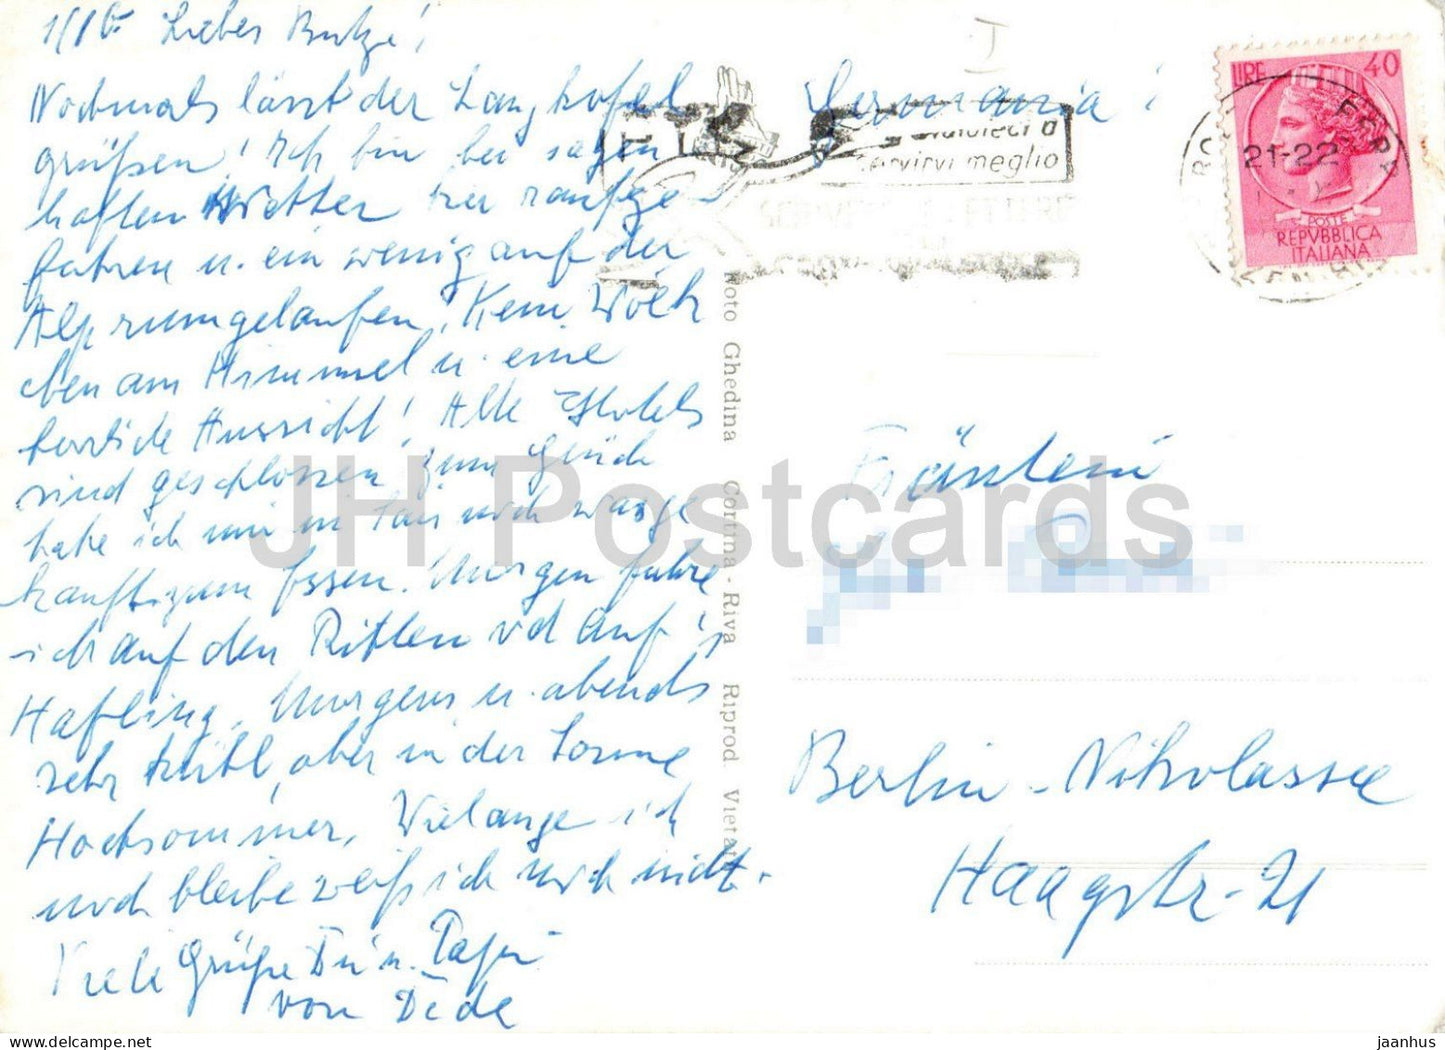 Liebes Butze!
Nochmals lässt der Langkofel
grüßen! Ich bin bei sagen
haften Wetter hier raufge-
fahren u. ein wenig auf der
Alp rumgelaufen, Kein Wölk
chen am Himmel u. eine
herrliche Aussicht! Alle Hotels
sind geschlossen, zum Glück
habe ich mir in was
zum Essen. Morgen fahre
ich auf den Ritten auf's
Hafling. Morgens u. abends
sehr kühl, aber in der Sonne
Hochsommer. Wielange ich
noch bleibe weiß ich noch nicht.
Viele Grüße Dir u.
von Dede
Germania!
servirvi meglio
21-22
LIRE 40
POSTE
REPVBBLICA
ITALIANA
Foto Ghedina Cortina - Riva Riprod. Vietata
Fräulein
Berlin-Nikolassee
Haagstr. 21
JH Postcards
jaanhus.myshopify.com